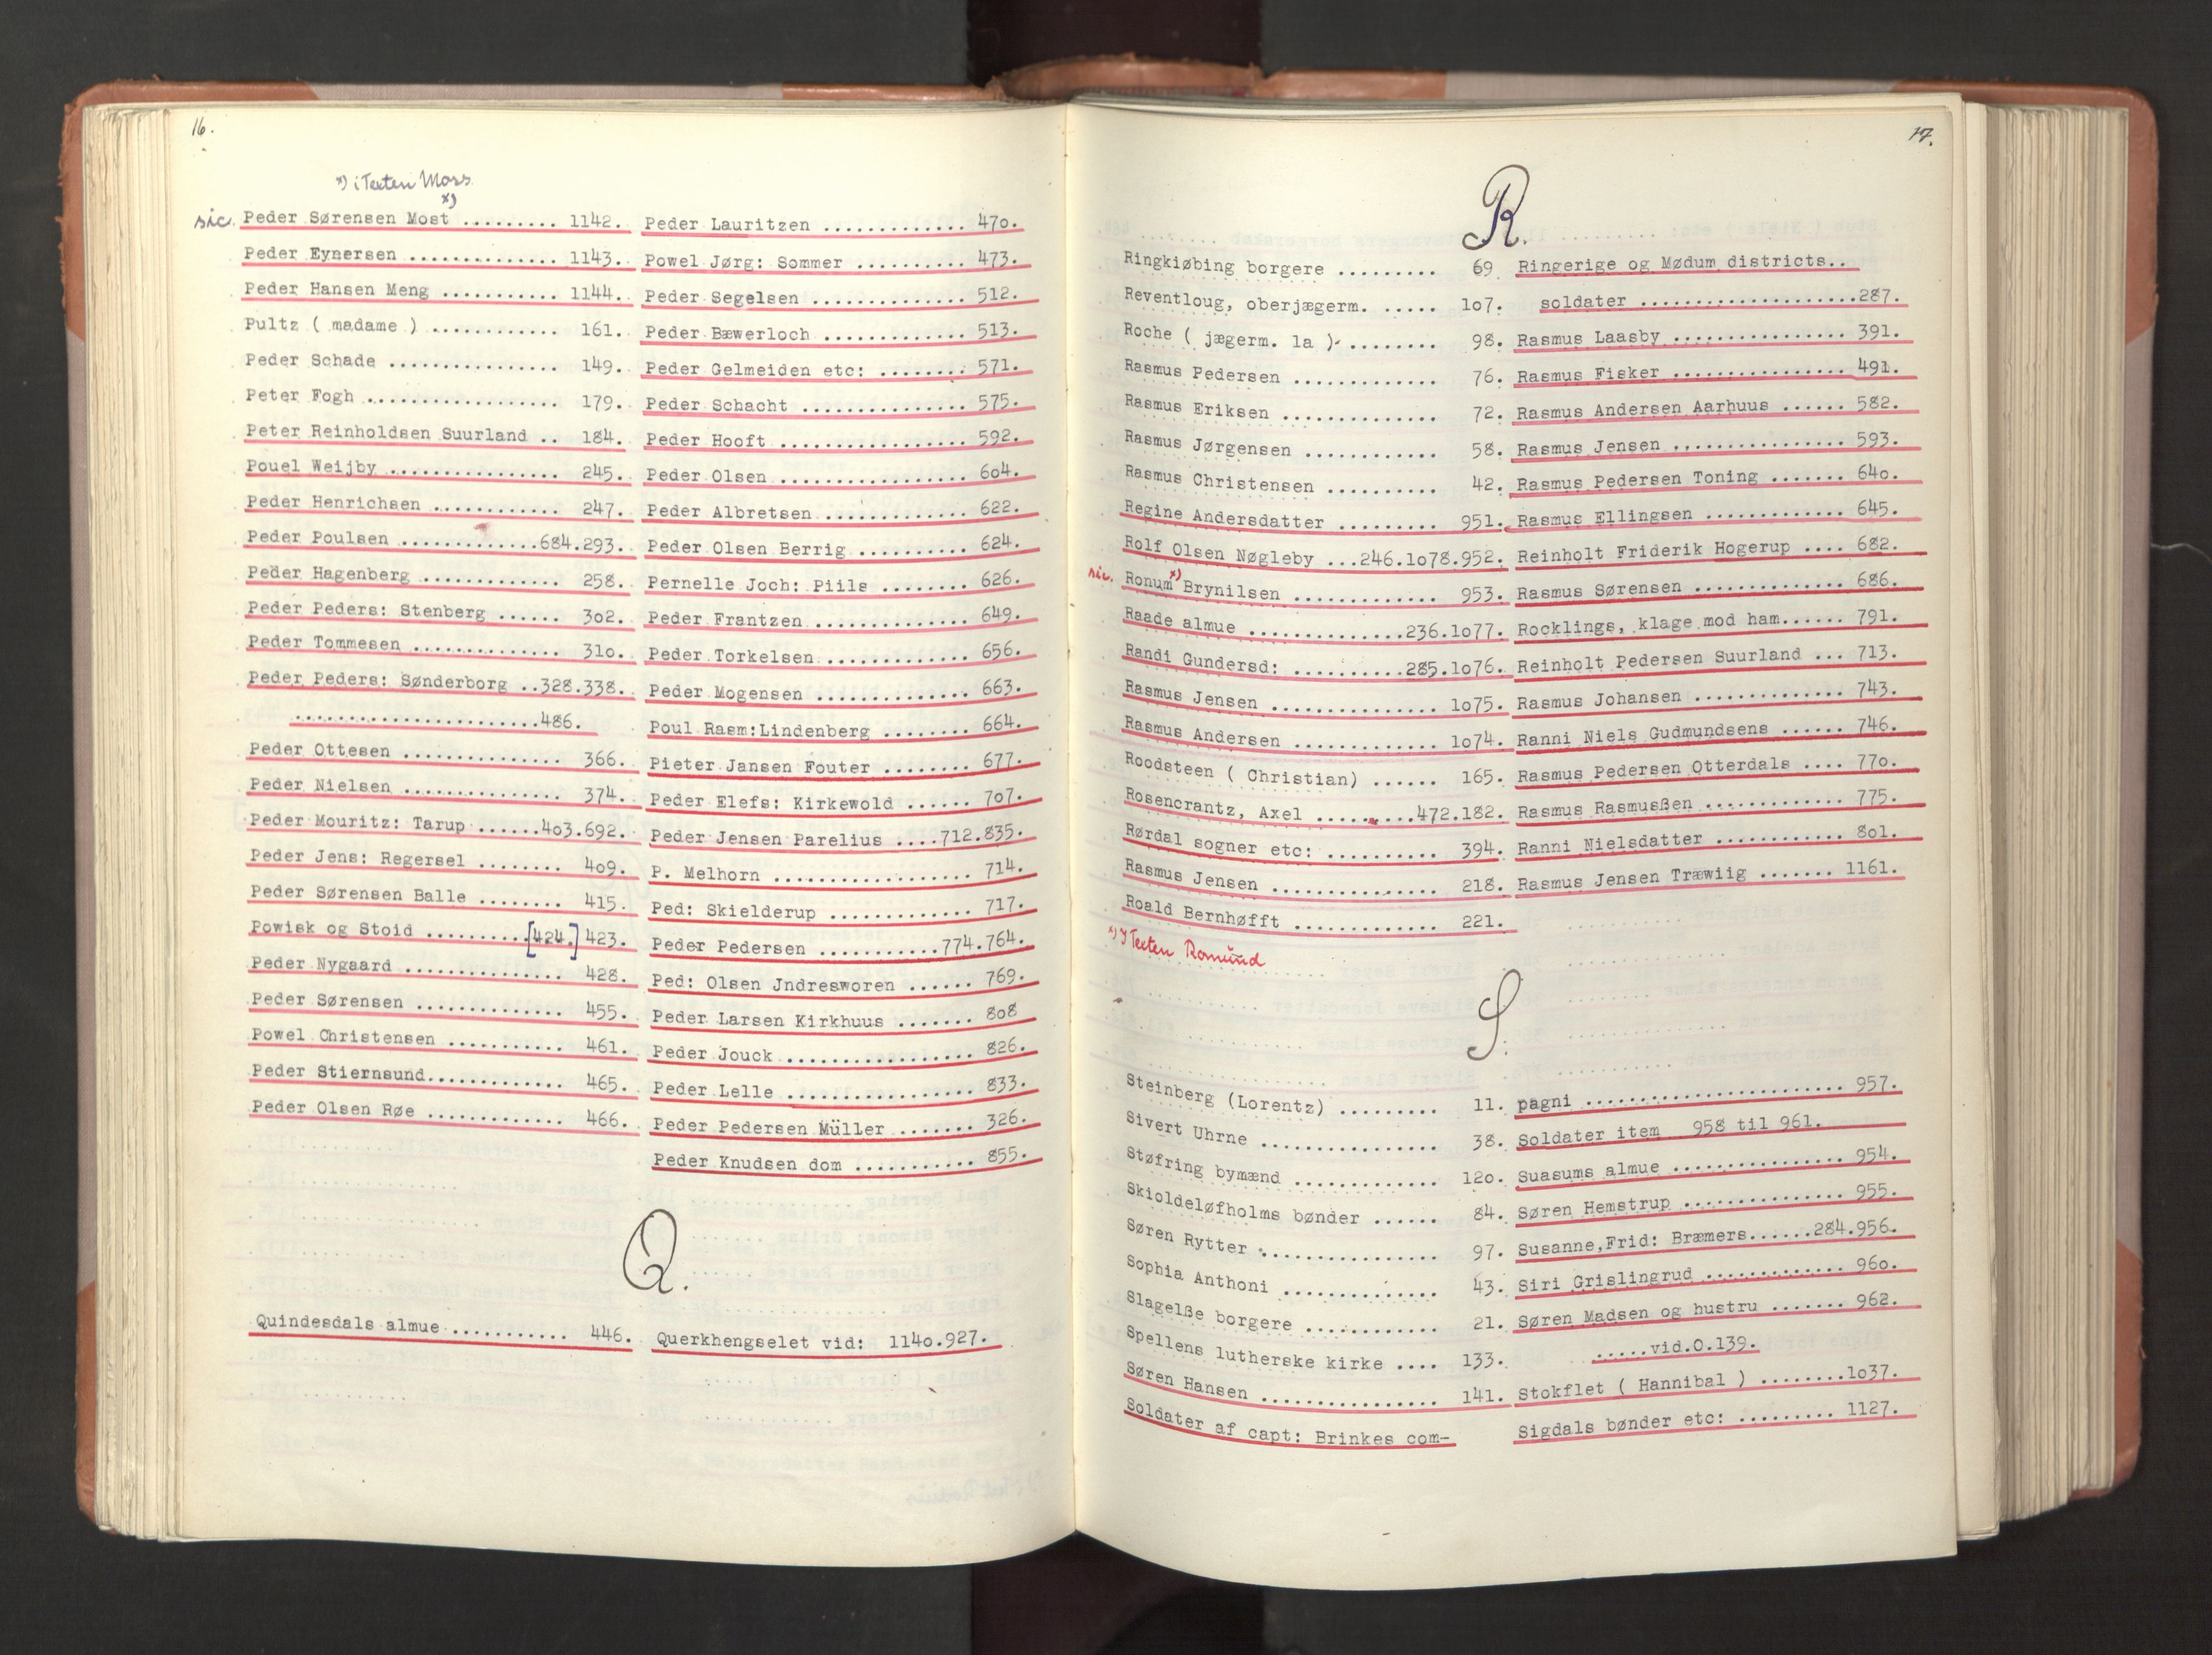 16.
x) i Texten Mors
x)
sic. Peder Sørensen Most ......... 1142.
Peder Eynersen .............. 1143.
Peder Hansen Meng ........... 1144.
Pultz ( madame ) ............ 161.
Peder Schade ................ 149.
Peter Fogh .................. 179.
Peter Reinholdsen Suurland .. 184.
Pouel Weijby ................ 245.
Peder Henrichsen ............ 247.
Peder Poulsen .............684.293.
Peder Hagenberg ............. 258.
Peder Peders: Stenberg ...... 3o2.
Peder Tommesen .............. 31o.
Peder Peders: Sønderborg ..328.338.
.......................486.
Peder Ottesen ............... 366.
Peder Nielsen ............... 374.
Peder Mouritz: Tarup ......4o3.692.
Peder Jens: Regersel ........ 4o9.
Peder Sørensen Balle ........ 415.
Powisk og Stoid ..........[424.] 423.
Peder Nygaard ............... 428.
Peder Sørensen .............. 455.
Powel Christensen ........... 461.
Peder Stiernsund............. 465.
Peder Olsen Røe ............. 466.
Peder Lauritzen ............. 47o.
Powel Jørg: Sommer .......... 473.
Peder Segelsen .............. 512.
Peder Bæwerloch ............. 513.
Peder Gelmeiden etc: ........ 571.
Peder Schacht ............... 575.
Peder Hooft ................. 592.
Peder Olsen ................. 6o4.
Peder Albretsen ............. 622.
Peder Olsen Berrig .......... 624.
Pernelle Joch: Piils ........ 626.
Peder Frantzen .............. 649.
Peder Torkelsen ............. 656.
Peder Mogensen .............. 663.
Poul Rasm:Lindenberg ........ 664.
Pieter Jansen Fouter ........ 677.
Peder Elefs: Kirkewold ...... 7o7.
Peder Jensen Parelius ....712.835.
P. Melhorn .................. 714.
Ped: Skielderup ............. 717.
Peder Pedersen ...........774.764.
Ped: Olsen Jndresworen ...... 769.
Peder Larsen Kirkhuus ....... 8o8
Peder Jouck ................. 826.
Peder Lelle ................. 833.
Peder Pedersen Müller ....... 326.
Peder Knudsen dom ........... 855.
Q.
Quindesdals almue ........... 446.
Querkhengselet vid: 114o.927.
17.
R.
Ringkiøbing borgere ......... 69.
Reventloug, oberjægerm. ..... 1o7.
Roche ( jægerm. la ) ........ 98.
Rasmus Pedersen ............. 76.
Rasmus Eriksen .............. 72.
Rasmus Jørgensen ............ 58.
Rasmus Christensen .......... 42.
Regine Andersdatter ......... 951.
Rolf Olsen Nøgleby ...246.1o78.952.
sic. Ronum x) Brynilsen ............. 953.
Raade almue ..............236.1o77.
Randi Gundersd: ..........285.1o76.
Rasmus Jensen ............... 1o75.
Rasmus Andersen ............. 1o74.
Roodsteen ( Christian) ...... 165.
Rosencrantz, Axel .........472.182.
Rørdal sogner etc: .......... 394.
Rasmus Jensen ............... 218.
Roald Bernhøfft ............. 221.
x) I Texten Romund
Ringerige og Mødum districts..
soldater ....................287.
Rasmus Laasby ................ 391.
Rasmus Fisker ................ 491.
Rasmus Andersen Aarhuus ...... 582.
Rasmus Jensen ................ 593.
Rasmus Pedersen Toning ....... 64o.
Rasmus Ellingsen ............. 645.
Reinholt Friderik Hogerup .... 682.
Rasmus Sørensen .............. 686.
Rocklings, klage mod ham...... 791.
Reinholt Pedersen Suurland ... 713.
Rasmus Johansen .............. 743.
Ranni Niels Gudmundsens ...... 746.
Rasmus Pedersen Otterdals .... 77o.
Rasmus Rasmußen ............. 775.
Ranni Nielsdatter ............ 8o1.
Rasmus Jensen Træwiig ....... 1161.
S.
Steinberg (Lorentz) ......... 11.
Sivert Uhrne ................ 38.
Støfring bymænd ............. 12o.
Skioldeløfholms bønder ...... 84.
Søren Rytter ................ 97.
Sophia Anthoni .............. 43.
Slagelße borgere ............ 21.
Spellens lutherske kirke .... 133.
Søren Hansen ................ 141.
Soldater af capt: Brinkes com-
pagni ........................ 957.
Soldater item 958 til 961.
Suasums almue ................ 954.
Søren Hemstrup ............... 955.
Susanne,Frid: Bræmers......284.956.
Siri Grislingrud ............. 96o.
Søren Madsen og hustru ....... 962.
.....vid.O.139.
Stokflet ( Hannibal ) ........1o37.
Sigdals bønder etc: ......... 1127.